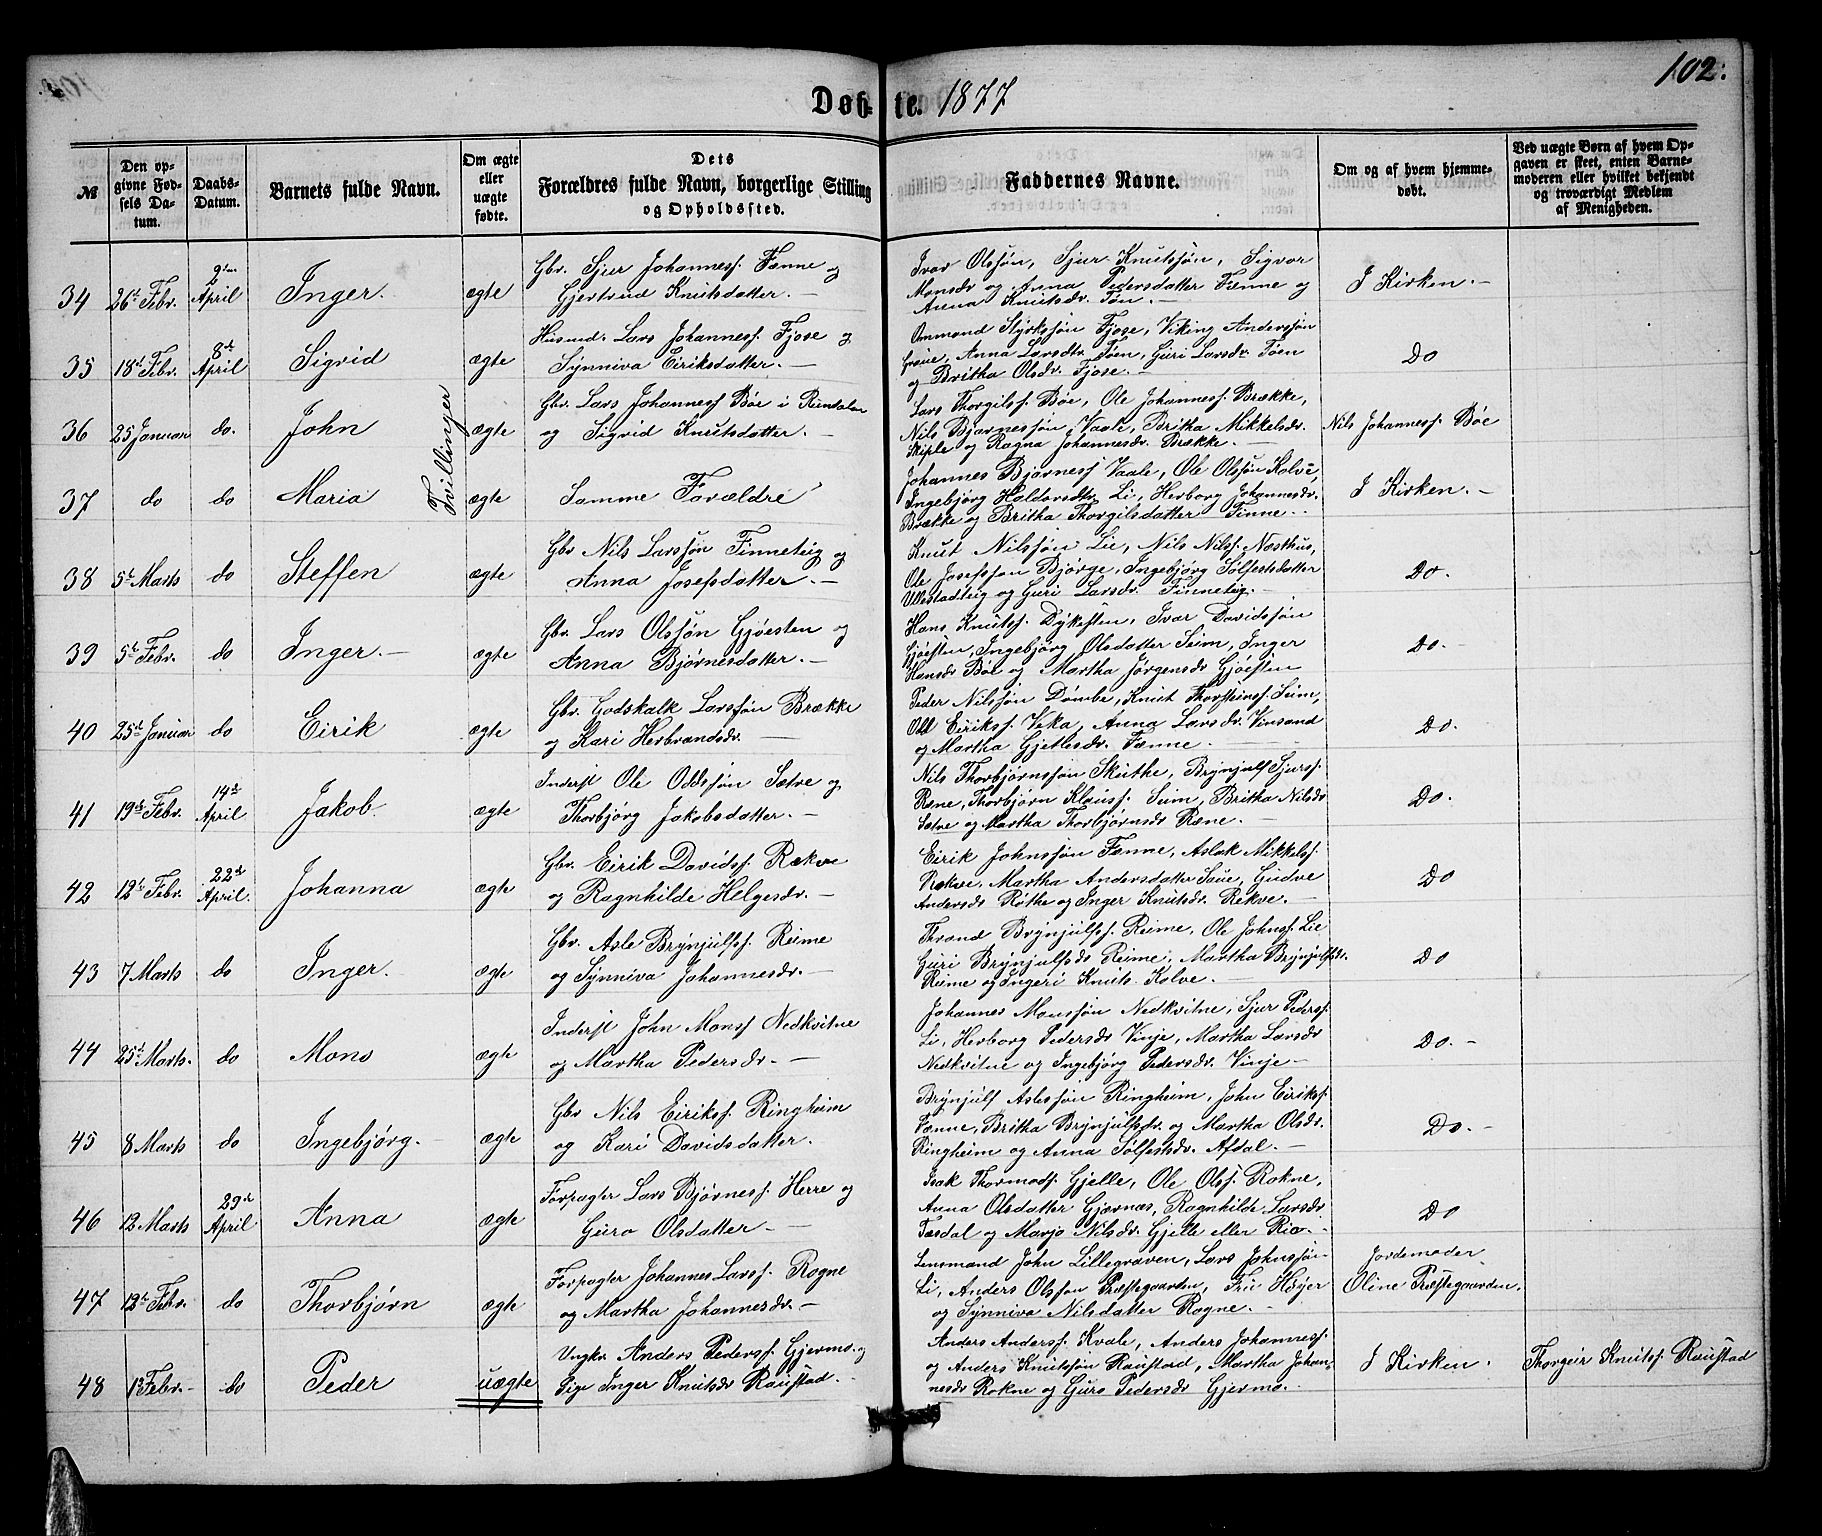 102.
Døbte. 1877
№
Den opgivne Fødsels Datum.
Daabs-Datum.
Barnets fulde Navn.
Om ægte eller uægte fødte.
Dets Forældres fulde Navn, borgerlige Stilling og Opholdssted.
Faddernes Navne.
Om og af hvem hjemmedøbt.
Ved uægte Børn af hvem Opgaven er skeet, enten Barnemoderen eller hvilket bekjendt og troværdigt Medlem af Menigheden.
34 26de Febr. 2den April Inger. ægte
Gbr. Sjur Johannesf. Fænne og
Gjertrud Knutsdatter. —
Ivar Olssøn, Sjur Knutssøn, Sigvor
Monsdr og Anna Pedersdatter Fænne og
Anna Knutsdr. Tøn. —
I Kirken. —
35 18de Febr. 8de April Sigrid ægte
Husmd. Lars Johannesf. Fjose og
Synniva Eiriksdatter. —
Ommund Styrkssøn Fjose, Viking Anderssøn
Græue, Anna Larsdtr Tøen, Guri Larsdr. Tøen
og Britha Olsdr. Fjose. —
Do
36 25 Januar do. John ægte
Tvillinger
Gbr. Lars Johannesf Bøe i Rundalen
og Sigrid Knutsdatter. —
Lars Thorgilsf. Bøe, Ole Johannesf. Brække,
Nils Bjørnessøn Vaale, Britha Mikkelsdr.
Skiple og Ragna Johannesdr. Brække. —
Nils Johannesf. Bøe
37 do do Maria ægte
Samme Forældre
Johannes Bjørnesf Vaale, Ole Olssøn Kolve,
Ingebjørg Haldorsdtr Li, Herborg Johannesdr.
Brække og Britha Thorgilsdatter Finne.
I Kirken. —
38 5te Marts do Steffen ægte
Gbr Nils Larssøn Finneteig og
Anna Josefsdatter. —
Knut Nilssøn Lie, Nils Nilsf. Næsthus,
Ole Josefssøn Bjørge, Ingebjørg Sølfestsdatter
Ullestadteig og Guri Larsdr. Finneteig. —
Do.
39 5te Febr. do Inger. — ægte
Gbr. Lars Olssøn Gjøesten og
Anna Bjørnesdatter. —
Hans Knutsf. Dykesten, Ivar Davidssøn
Gjøesten, Ingebjørg Olsdatter Seim, Inger
Hansdr Bøe og Martha Jørgensdr Gjøesten
Do. —
40 25de Januar do Eirik ægte
Gbr. Godskalk Larssøn Brække
og Kari Herbrandsdr. —
Peder Nilssøn Dømbe, Knut Thorsteinsf. Seim,
Odd Eiriksf. Veka, Anna Larsdr. Vinsand
og Martha Gjetlesdr. Fænne. —
Do.
41 19de Febr. 14de April Jakob. ægte
Inderst Ole Oddssøn Sætre og
Thorbjørg Jakobsdatter. —
Nils Thorbjørnssøn Skuthe, Brynjulf Sjursf.
Rene, Thorbjørn Klausf. Seim, Britha Nilsdr
Sætre og Martha Thorbjørnsdr Rene. —
Do.
42 12te Febr. 22de April. Johanna ægte
Gbr. Eirik Davidsf. Rekve
og Ragnhilde Helgesdr. —
Eirik Johnssøn Fænne, Aslak Mikkelsf.
Rekve, Martha Andersdatter Saue, Gudve
Andersdr Røthe og Inger Knutsdr. Rekve. —
Do
43 7 Marts do Inger. ægte
Gbr. Asle Brynjulfsf. Reime
og Synniva Johannesdr. —
Thrond Brynjulfsf. Reime, Ole Johnsf. Lie
Guri Brynjulfsdr Reime, Martha Brynjulfsdr.
Reime og Ingeri Knuts. Kolve. —
Do
44 25de Marts. do Mons ægte
Inderst John Monsf Nedkvitne
og Martha Pedersdr. —
Johannes Monssøn Nedkvitne, Sjur Pedersf.
Li, Herborg Pedersdr Vinje, Martha Larsdr
Nedkvitne og Ingebjørg Pedersdr. Vinje —
Do. —
45 8 Marts do Ingebjørg. — ægte
Gbr Nils Eiriksf. Ringheim
og Kari Davidsdatter.
Brynjulf Aslessøn Ringheim, John Eiriksf.
Fænne, Britha Brynjulfsdr. og Martha Olsdr.
Ringheim og Anna Sølfestsdr. Afdal. —
Do. —
46 12 Marts 29de April Anna ægte
Forpagter Lars Bjørnesf. Herre og
Guro Olsdatter —
Isak Thormodsf. Gjelle, Ole Olsf. Rokne,
Anna Olsdatter Gjernæs, Ragnhilde Larsdr
Tæsdal og Marjo Nilsdr. Gjelle eller Rio —
Do
47 12te Febr. do Thorbjørn ægte
Forpagter Johannes Larsf. Rogne
og Martha Johannesdr. —
Lensmand John Lillegraven, Lars Johnssøn
Li, Anders Olssøn Præstegaarden, Fru Høyer
og Synniva Nilsdatter Rogne. —
Jordemoder
Oline Præstegaarden.
48 13 Febr. do Peder uægte
Ungkr. Anders Pedersf. Gjermo og
Pige Inger Knutsdr Raustad. —
Anders Andersf. Kvale, Anders Johannesf.
og Anders Knutssøn Raustad, Martha Johan-
nesdr Rokne og Guro Pedersdr Gjermo. —
I Kirken.
Thorgeir Knutsf. Raustad